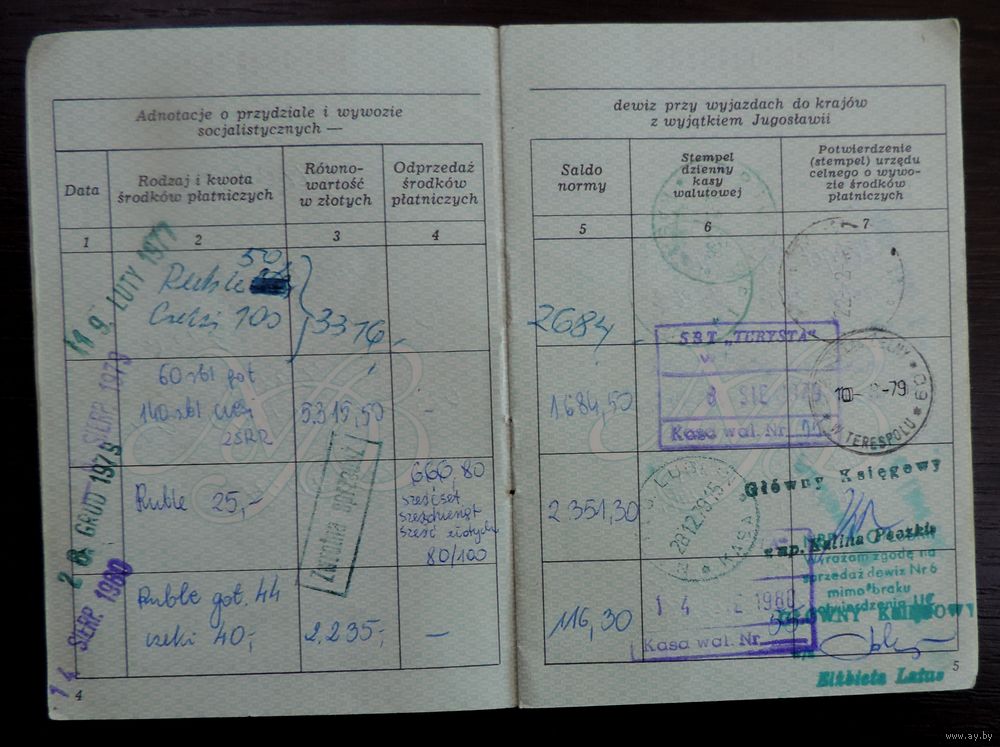 Adnotacje o przydziale i wywozie
socjalistycznych —
Data
Rodzaj i kwota
środków płatniczych
Równo-
wartość
w złotych
Odprzedaż
środków
płatniczych
1
2
3
4
19. LUTY 1977
Ruble 50,
Czeki 100
3316,
SIERP. 1979
60 rbl got
140 rbl
ZSRR
5315,50
-
28 GRUD 1979
Ruble 25,-
Zwrotna sprzedaż
666,80
sześćset
sześćdziesiąt
sześć złotych
80/100
14 SIERP. 1980
Ruble got. 44
czeki 40,-
2.235,-
—
4
dewiz przy wyjazdach do krajów
z wyjątkiem Jugosławii
Saldo
normy
Stempel
dzienny
kasy
walutowej
Potwierdzenie
(stempel) urzędu
celnego o wywo-
zie środków
płatniczych
5
6
7
2684,
SBT „TURYSTA"
1684,50
8 SIE 1979
Kasa wal. Nr
10 -79
W TERESPOLU
60
2351,30
28.12.79.15
KASA
Główny Księgowy
mgr. Halina
Wyrażam zgodę na
sprzedaż dewiz Nr 6
mimo braku
potwierdzenia UC
116,30
14 SIE 1980
Kasa wal. Nr
GŁÓWNY KSIĘGOWY
Elżbieta Latus
5
www.ay.by